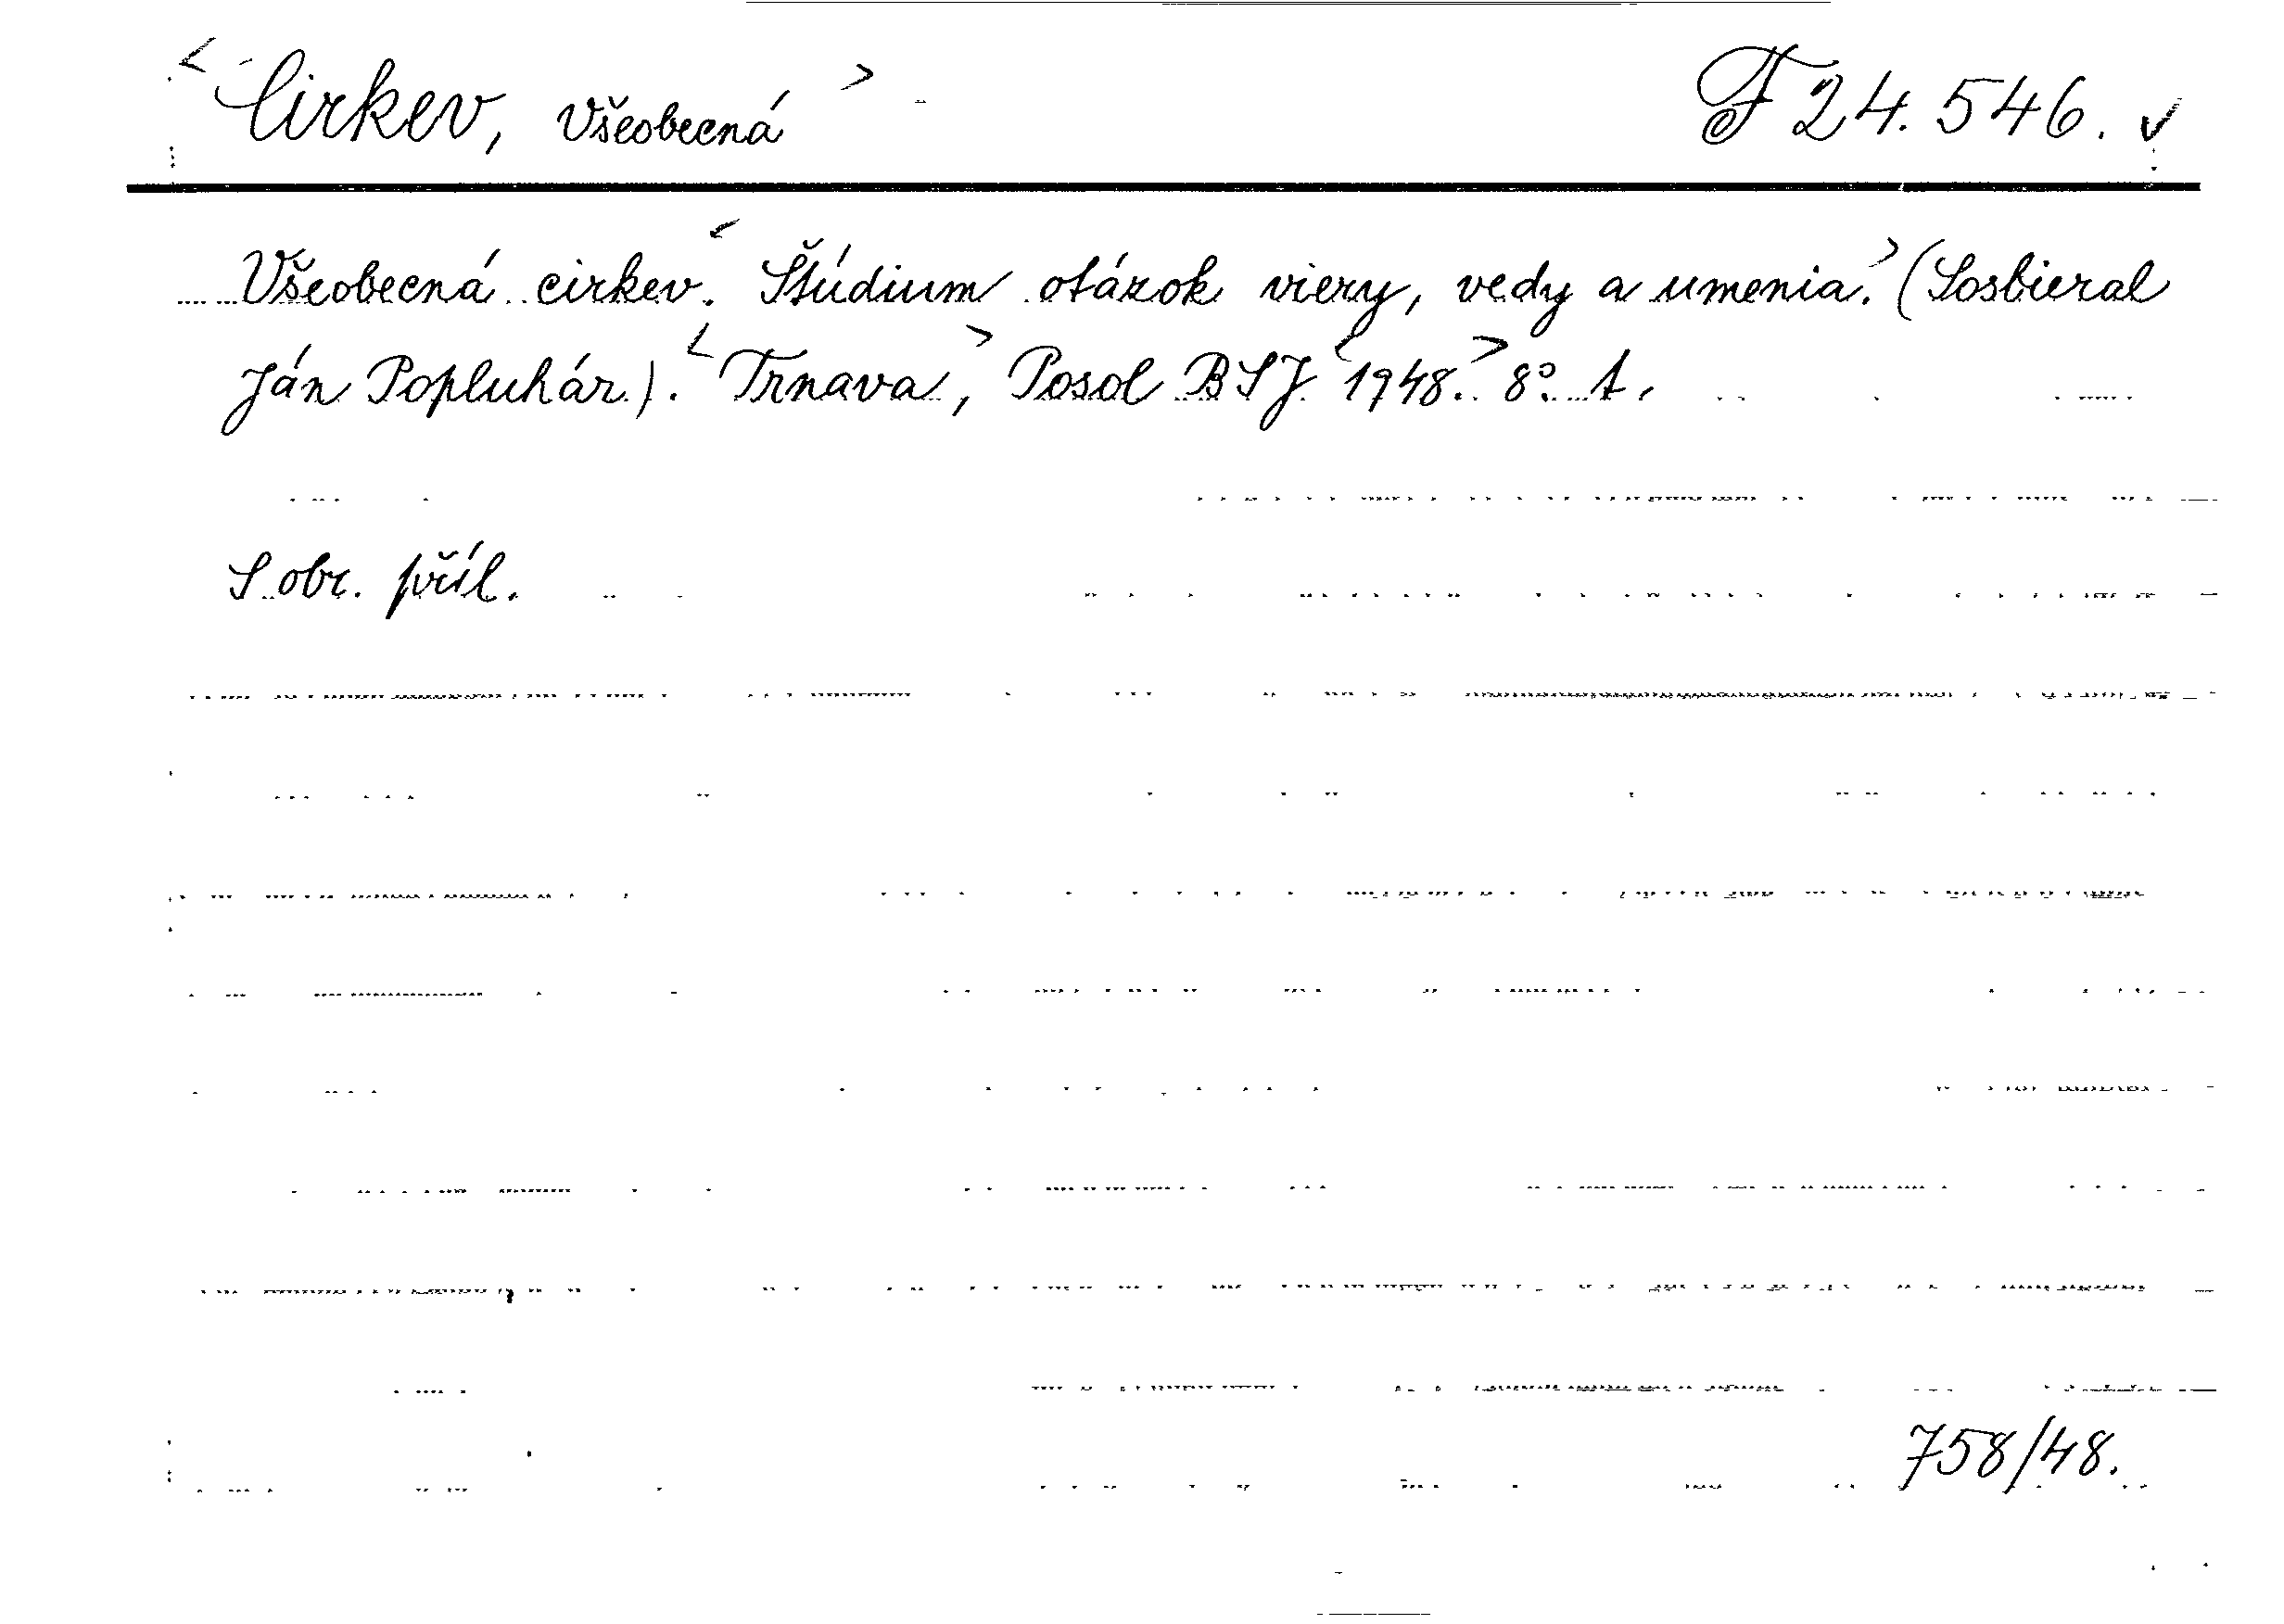 < Cirkev, Všeobecná > F 24.546. ✓
Všeobecná cirkev. < Štúdium otázok viery, vedy a umenia. > (Sosbieral
Ján Popluhár). < Trnava, > Posol BSJ < 1948. > 8°. 1.
S obr. příl.
758/48.